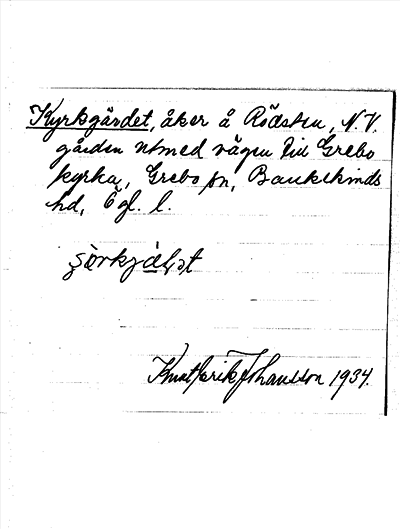 Kyrkgärdet, åker å Rödsten, N.V.
gården utmed vägen till Grebo
kyrka, Grebo sn, Bankekinds
hd, Ög. l.
Knut Erik Johansson 1934.